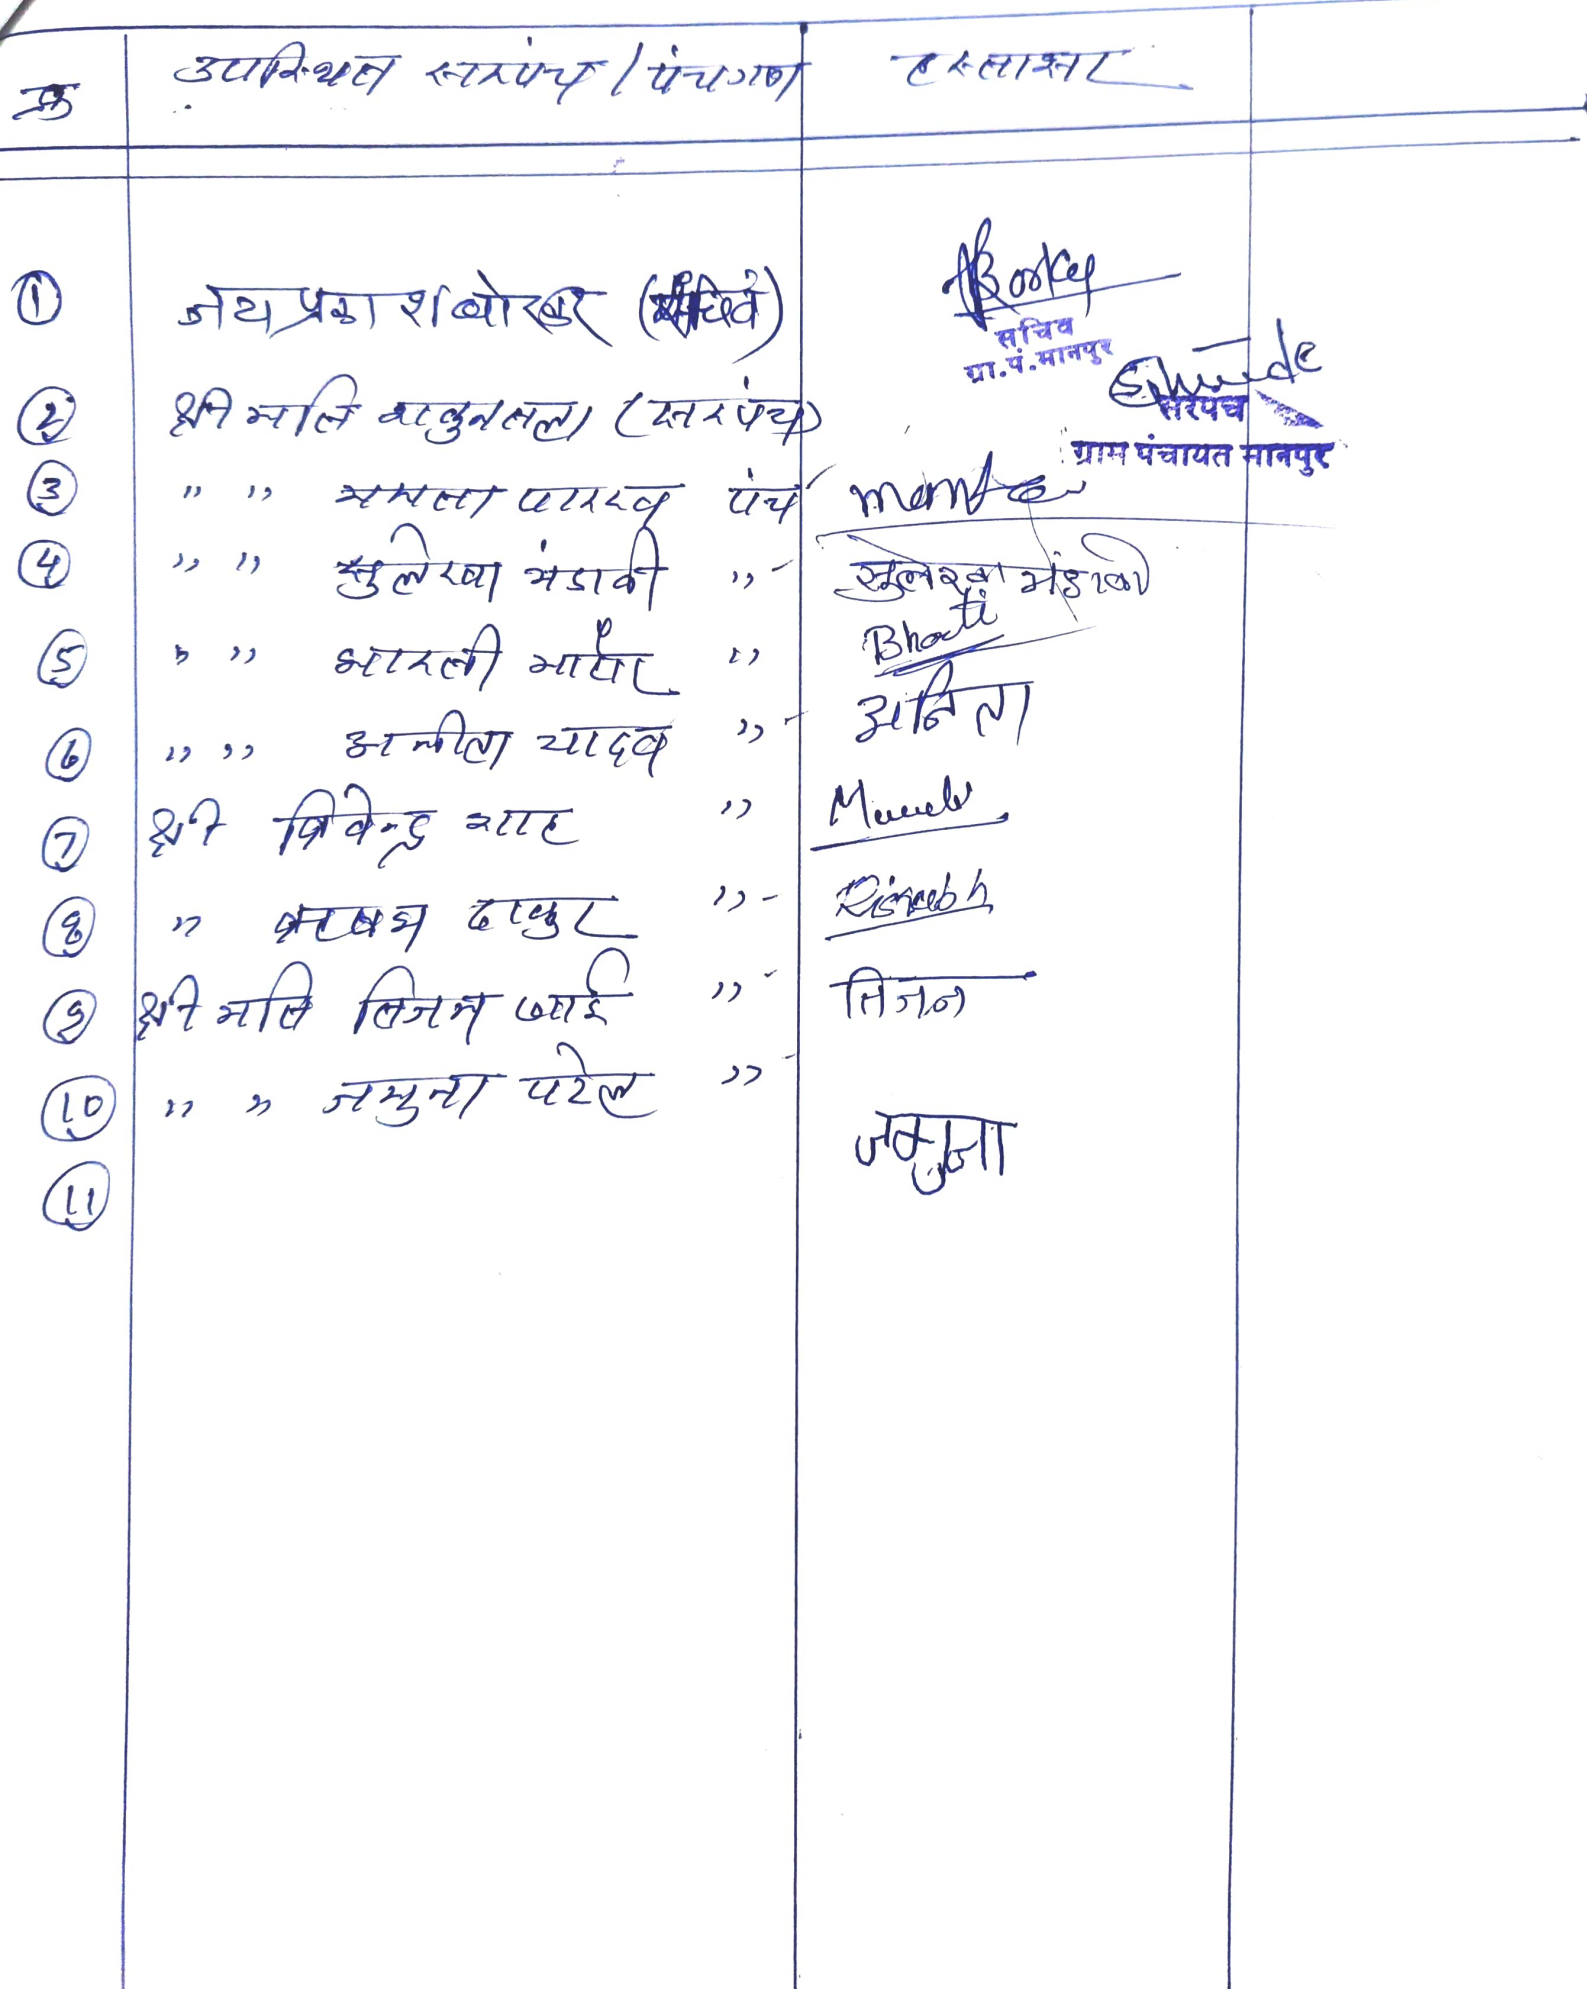 क्र उपस्थित सरपंच / पंचगण हस्ताक्षर
① जय प्रकाश बोरकर (सचिव)
सचिव
ग्रा.पं.मानपुर
② श्रीमति शकुनतला (सरपंच)
सरपंच
ग्राम पंचायत मानपुर
③ " " ममता पारख पंच
④ " " सुलेखा मंडावी " सुलेखा मंडावी
⑤ " " भारती " Bharti
⑥ " " अनीता यादव " अनिता
⑦ श्री शाह "
⑧ " ऋषभ ठाकुर " Rishabh
⑨ श्रीमति तिजन बाई " तिजन
⑩ " " जमुना पटेल " जमुना
⑪